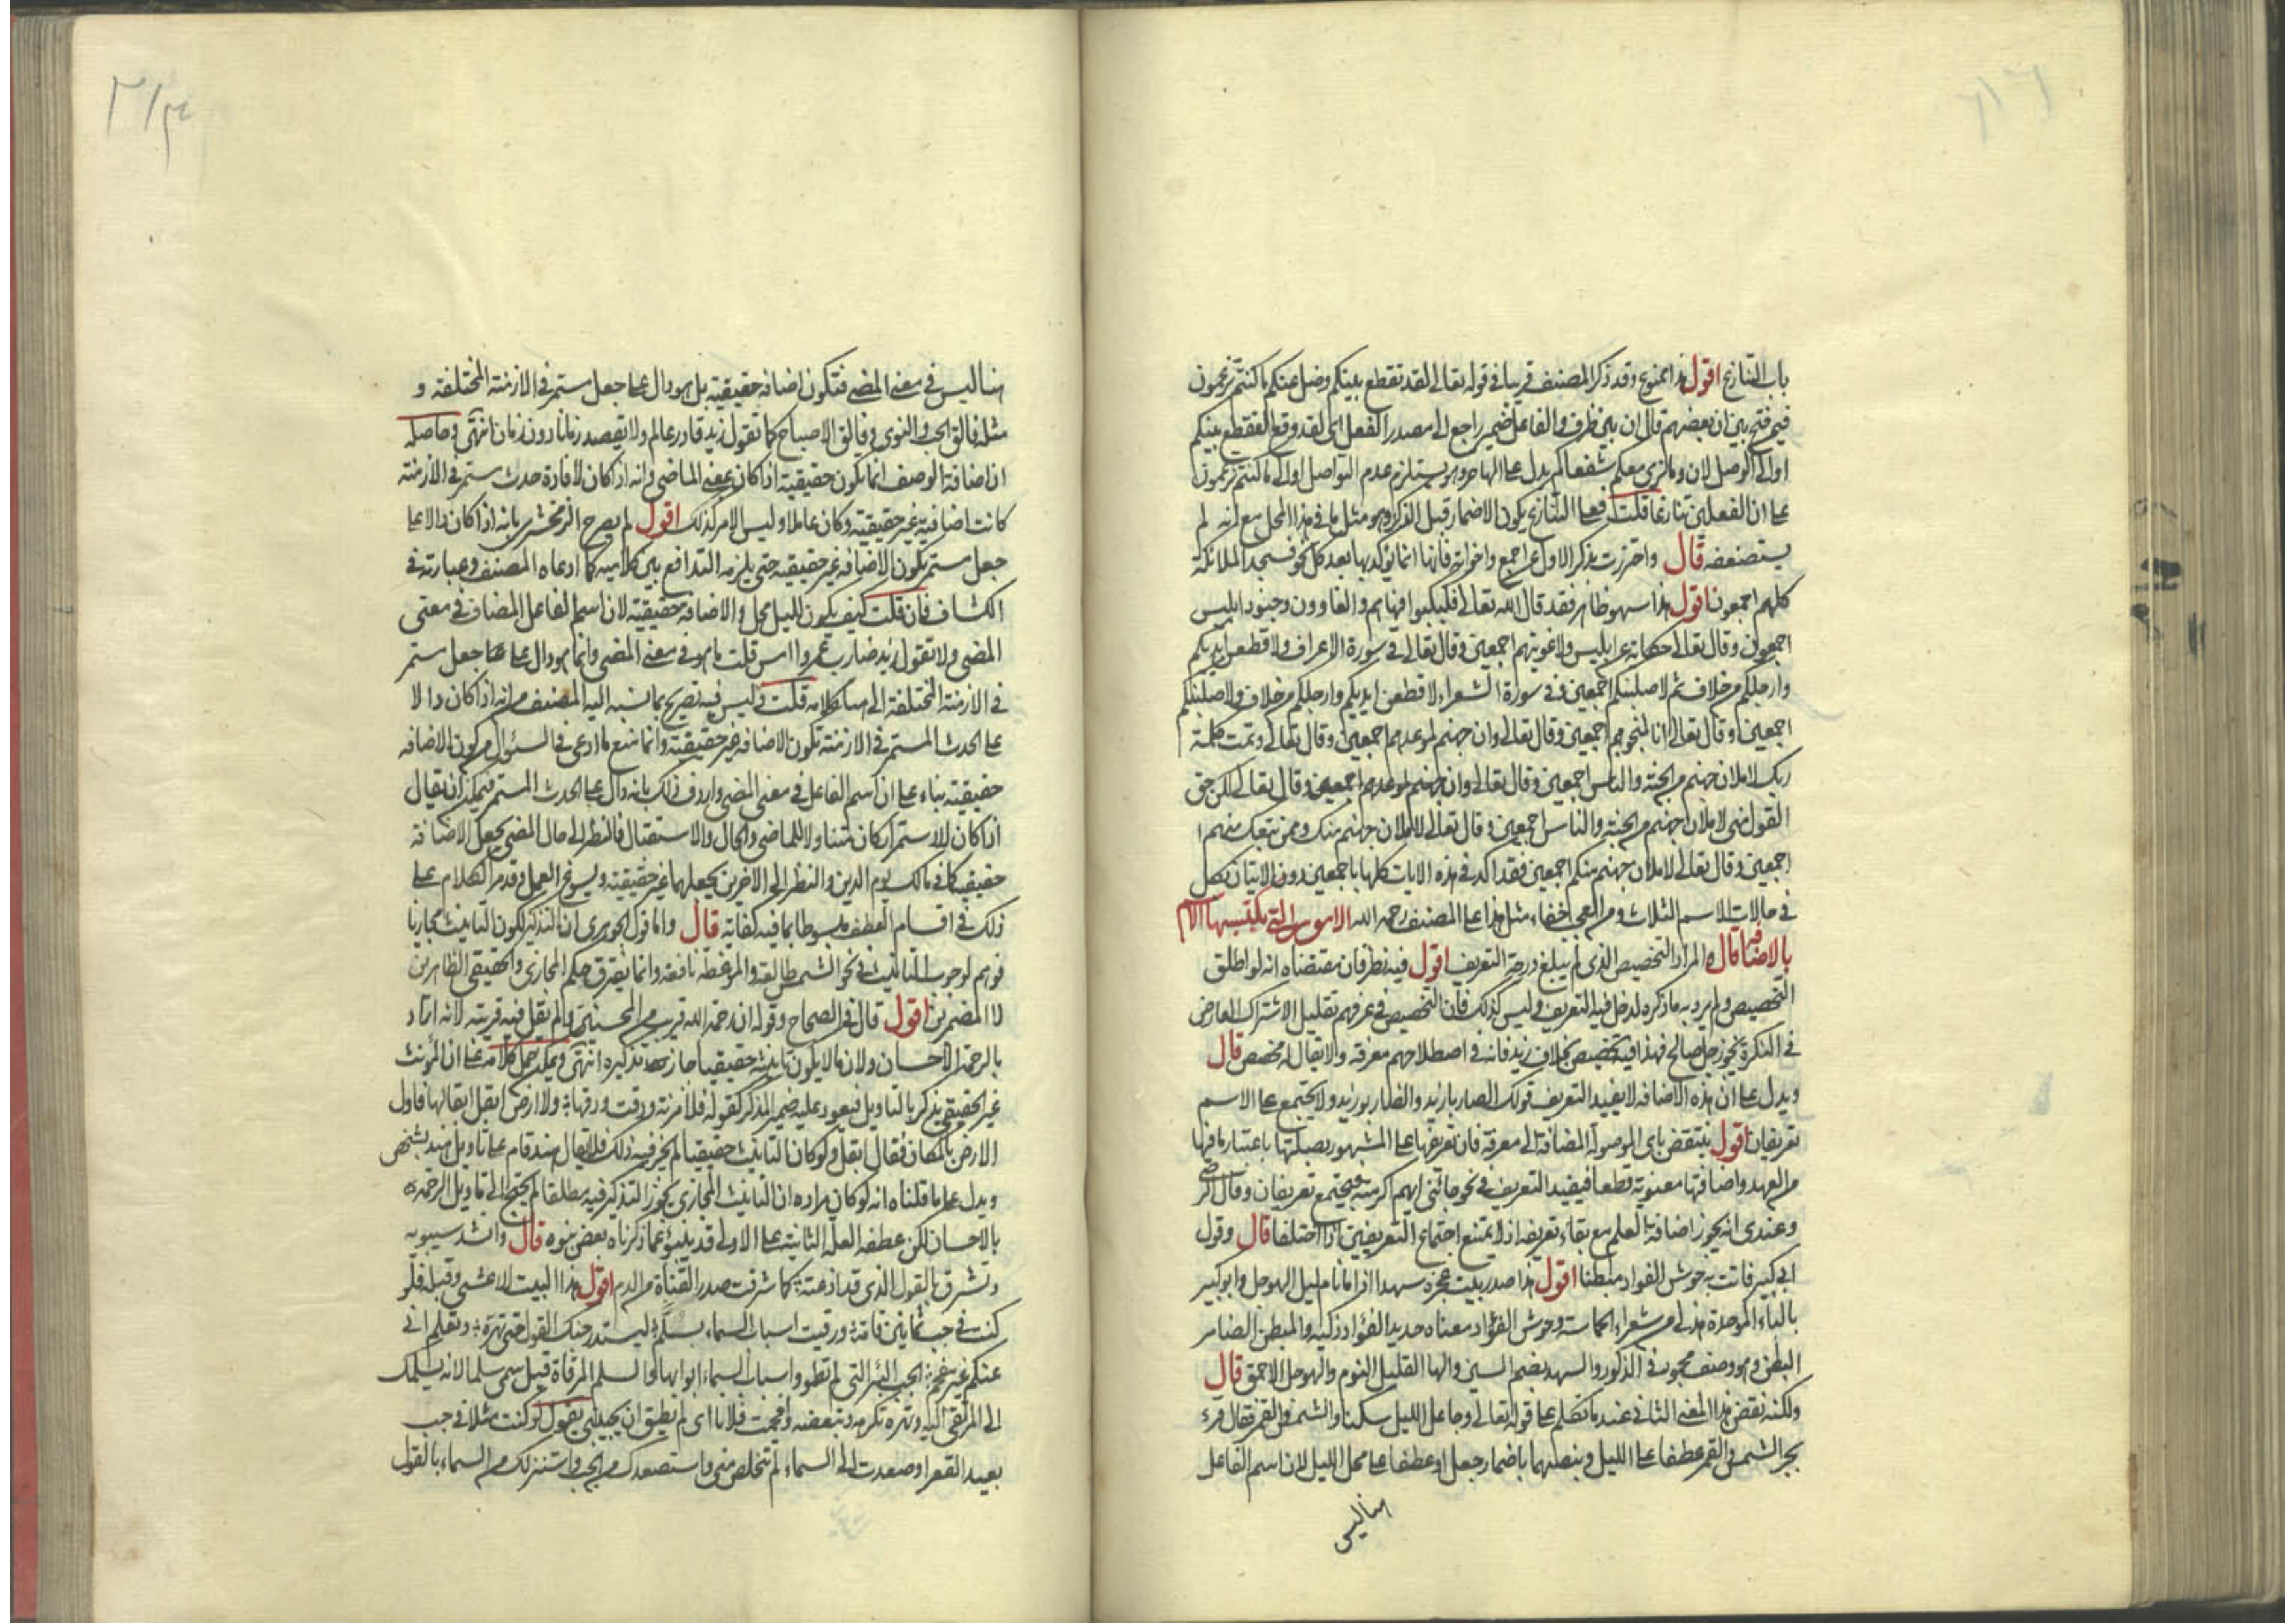 باب التنازع اقول هذا ممنوع وقد ذكر المصنف قريبا في قوله تعالى لقد تقطع بينكم وضل عنكم ما كنتم تزعمون
فيمن فتح بين ان بعضهم قال ان بين ظرف والفاعل ضمير راجع الى مصدر الفعل اى لقد وقع التقطع بينكم
او الى الوصل لان وما نرى معكم شفعاكم يدل على التهاجر وهو يستلزم عدم التواصل او الى ما كنتم تزعمون
على ان الفعلين تنازعا قلت فعلى التنازع يكون الاضمار قبل الذكر وهو مثل ما في هذا المحل مع انه لم
يستضعفه قال واحترزت بذكر الاول عن اجمع واخواته فانها انما يؤكد بها بعد كل نحو فسجد الملائكة
كلهم اجمعون اقول هذا سهو ظاهر فقد قال الله تعالى فكبكبوا فيها هم والغاوون وجنود ابليس
اجمعون وقال تعالى حكاية عن ابليس ولاغوينهم اجمعين وقال تعالى في سورة الاعراف لاقطعن ايديكم
وارجلكم من خلاف ثم لاصلبنكم اجمعين وفي سورة الشعراء لاقطعن ايديكم وارجلكم من خلاف ولاصلبنكم
اجمعين وقال تعالى انا لمنجوهم اجمعين وقال تعالى وان جهنم لموعدهم اجمعين وقال تعالى وتمت كلمة
ربك لاملان جهنم من الجنة والناس اجمعين وقال تعالى وان جهنم لموعدهم اجمعين وقال تعالى لكن حق
القول منى لاملان جهنم من الجنة والناس اجمعين وقال تعالى لاملان جهنم منك وممن تبعك منهم
اجمعين وقال تعالى لاملان جهنم منكم اجمعين فقد اكد في هذه الايات كلها باجمعين دون الاتيان بكل
في حالات الاسم الثلاث ومن العجب خفاء مثل هذا على المصنف رحمه الله الامور التي يكتسبها الاسم
بالاضافة قال المراد التخصيص الذى لم يبلغ درجة التعريف اقول فيه نظر فان مقتضاه انه لو اطلق
التخصيص ولم يرد به ما ذكره لدخل فيه التعريف وليس كذلك فان التخصيص في عرفهم تقليل الاشتراك العارض
في النكرة نحو رجل صالح فهذا فيه تخصيص بخلاف زيد فانه في اصطلاحهم معرفة ولا يقال له مخصص قال
ويدل على ان هذه الاضافة لا يفيد التعريف قولك الضاربا زيد والضاربو زيد ولا يجتمع على الاسم
تعريفان اقول ينتقض باى الموصولة المضافة الى معرفة فان تعريفها على المشهور بصلتها باعتبار ما فيها
من العهد واضافتها معنوية قطعا فيفيد التعريف في نحو جائنى ايهم كرمته فيجتمع تعريفان وقال الرضى
وعندى انه يجوز اضافة العلم مع بقاء تعريفه اذ لا يمتنع اجتماع التعريفين اذا اختلفا قال وقول
ابى كبير فاتت به حوش الفواد مبطنا اقول هذا صدر بيت عجزه سهدا اذا ما نام ليل الهوجل وابو كبير
بالباء الموحدة هذلى من شعراء الحماسة وحوش الفؤاد معناه حديد الفؤاد ذكيه والمبطن الضامر
البطن وهو وصف محبوب في الذكور والسهد بضم السين والها القليل النوم والهوجل الاحمق قال
ولكنه نقض هذا المعنى الثانى عند ما تكلم على قوله تعالى وجاعل الليل سكنا والشمس والقمر فقال قرء
بجر الشمس والقمر عطفا على الليل وبنصبهما باضمار جعل او عطفا على محل الليل لان اسم الفاعل
هنا ليس
هنا ليس في معنى المضى فتكون اضافة حقيقية بل هو دال على جعل مستمر في الازمنة المختلفة و
مثله فالق الحب والنوى وفالق الاصباح كما تقول زيد قادر عالم ولا تقصد زمانا دون زمان انتهى وحاصله
ان اضافة الوصف انما يكون حقيقية اذا كان بمعنى الماضى وانه اذا كان لافادة حدث مستمر في الازمنة
كانت اضافية غير حقيقية وكان عاملا وليس الامر كذلك اقول لم يصرح الزمخشرى بانه اذا كان دالا على
جعل مستمر يكون الاضافة غير حقيقية حتى يلزمه التدافع بين كلاميه كما ادعاه المصنف وعبارته في
الكشاف فان قلت كيف يكون لليل محل والاضافة حقيقية لان اسم الفاعل المضاف في معنى
المضى ولا تقول زيد ضارب عمروا امس قلت ما هو في معنى المضى وانما هو دال على جعل مستمر
في الازمنة المختلفة الى هنا كلامه قلت وليس فيه تصريح بما نسبه اليه المصنف من انه اذا كان دالا
على الحدث المستمر في الازمنة تكون الاضافة غير حقيقية وانما منع ما ادعى في السؤال من كون الاضافة
حقيقية بناء على ان اسم الفاعل في معنى المضى واردف ذلك بانه دال على الحدث المستمر فيمكن ان يقال
اذا كان للاستمرار كان متناولا للماضى والحال والاستقبال فالنظر الى حال المضى يجعل الاضافة
حقيقية كما في مالك يوم الدين والنظر الى الاخرين يجعلهما غير حقيقية ويسوغ العمل وقد مر الكلام على
ذلك في اقسام العطف مبسوطا بما فيه كفاية قال واما قول الجوهرى ان التذكير لكون التانيث مجازيا
فوهم لوجوب التانيث في نحو الشمس طالعة والموعظة نافعة وانما يفترق حكم المجازى والحقيقى الظاهرين
لا المضمرين اقول قال في الصحاح وقوله ان رحمة الله قريب من المحسنين ولم يقل فيه قريبة لانه اراد
بالرحمة الاحسان ولان ما لا يكون تانيثه حقيقيا جاز تذكيره انتهى ويمكن حمل كلامه على ان المؤنث
غير الحقيقى يذكر بالتاويل فيعود عليه ضمير المذكر كقوله فلا مزنة ودقت ودقها ولا ارض ابقل ابقالها فاول
الارض بالمكان فقال ابقل ولو كان التانيث حقيقيا لم يجز فيه ذلك فلا يقال هند قام على تاويل هند بشخص
ويدل على ما قلناه انه لو كان مراده ان التانيث المجازى يجوز التذكير فيه مطلقا لم يحتج الى تاويل الرحمة
بالاحسان لكن عطفه العلة الثانية على الاولى قد ينبؤ عما ذكرناه بعض نبوه قال وانشد سيبويه
وتشرق بالقول الذى قد اذعته كما شرقت صدر القناة من الدم اقول هذا البيت للاعشى وقبله فلو
كنت في جب ثمانين قامة ورقيت اسباب السماء بسلم ليستدرجنك القول حتى تهره وتعلم انى
عنكم غير مفحم الجب البئر التى لم تطو واسباب السماء ابوابها والسلم المرقاة قيل سمى سلما لانه يسلمك
الى المرتقى اليه وتهره تكرهه وتبغضه وافحمت فلانا اى لم يطق ان يجيبنى يقول لو كنت مثلا في جب
بعيد القعر او صعدت الى السماء لم تتخلص منى واستصعدك من الجب واستنزلك من السماء بالقول